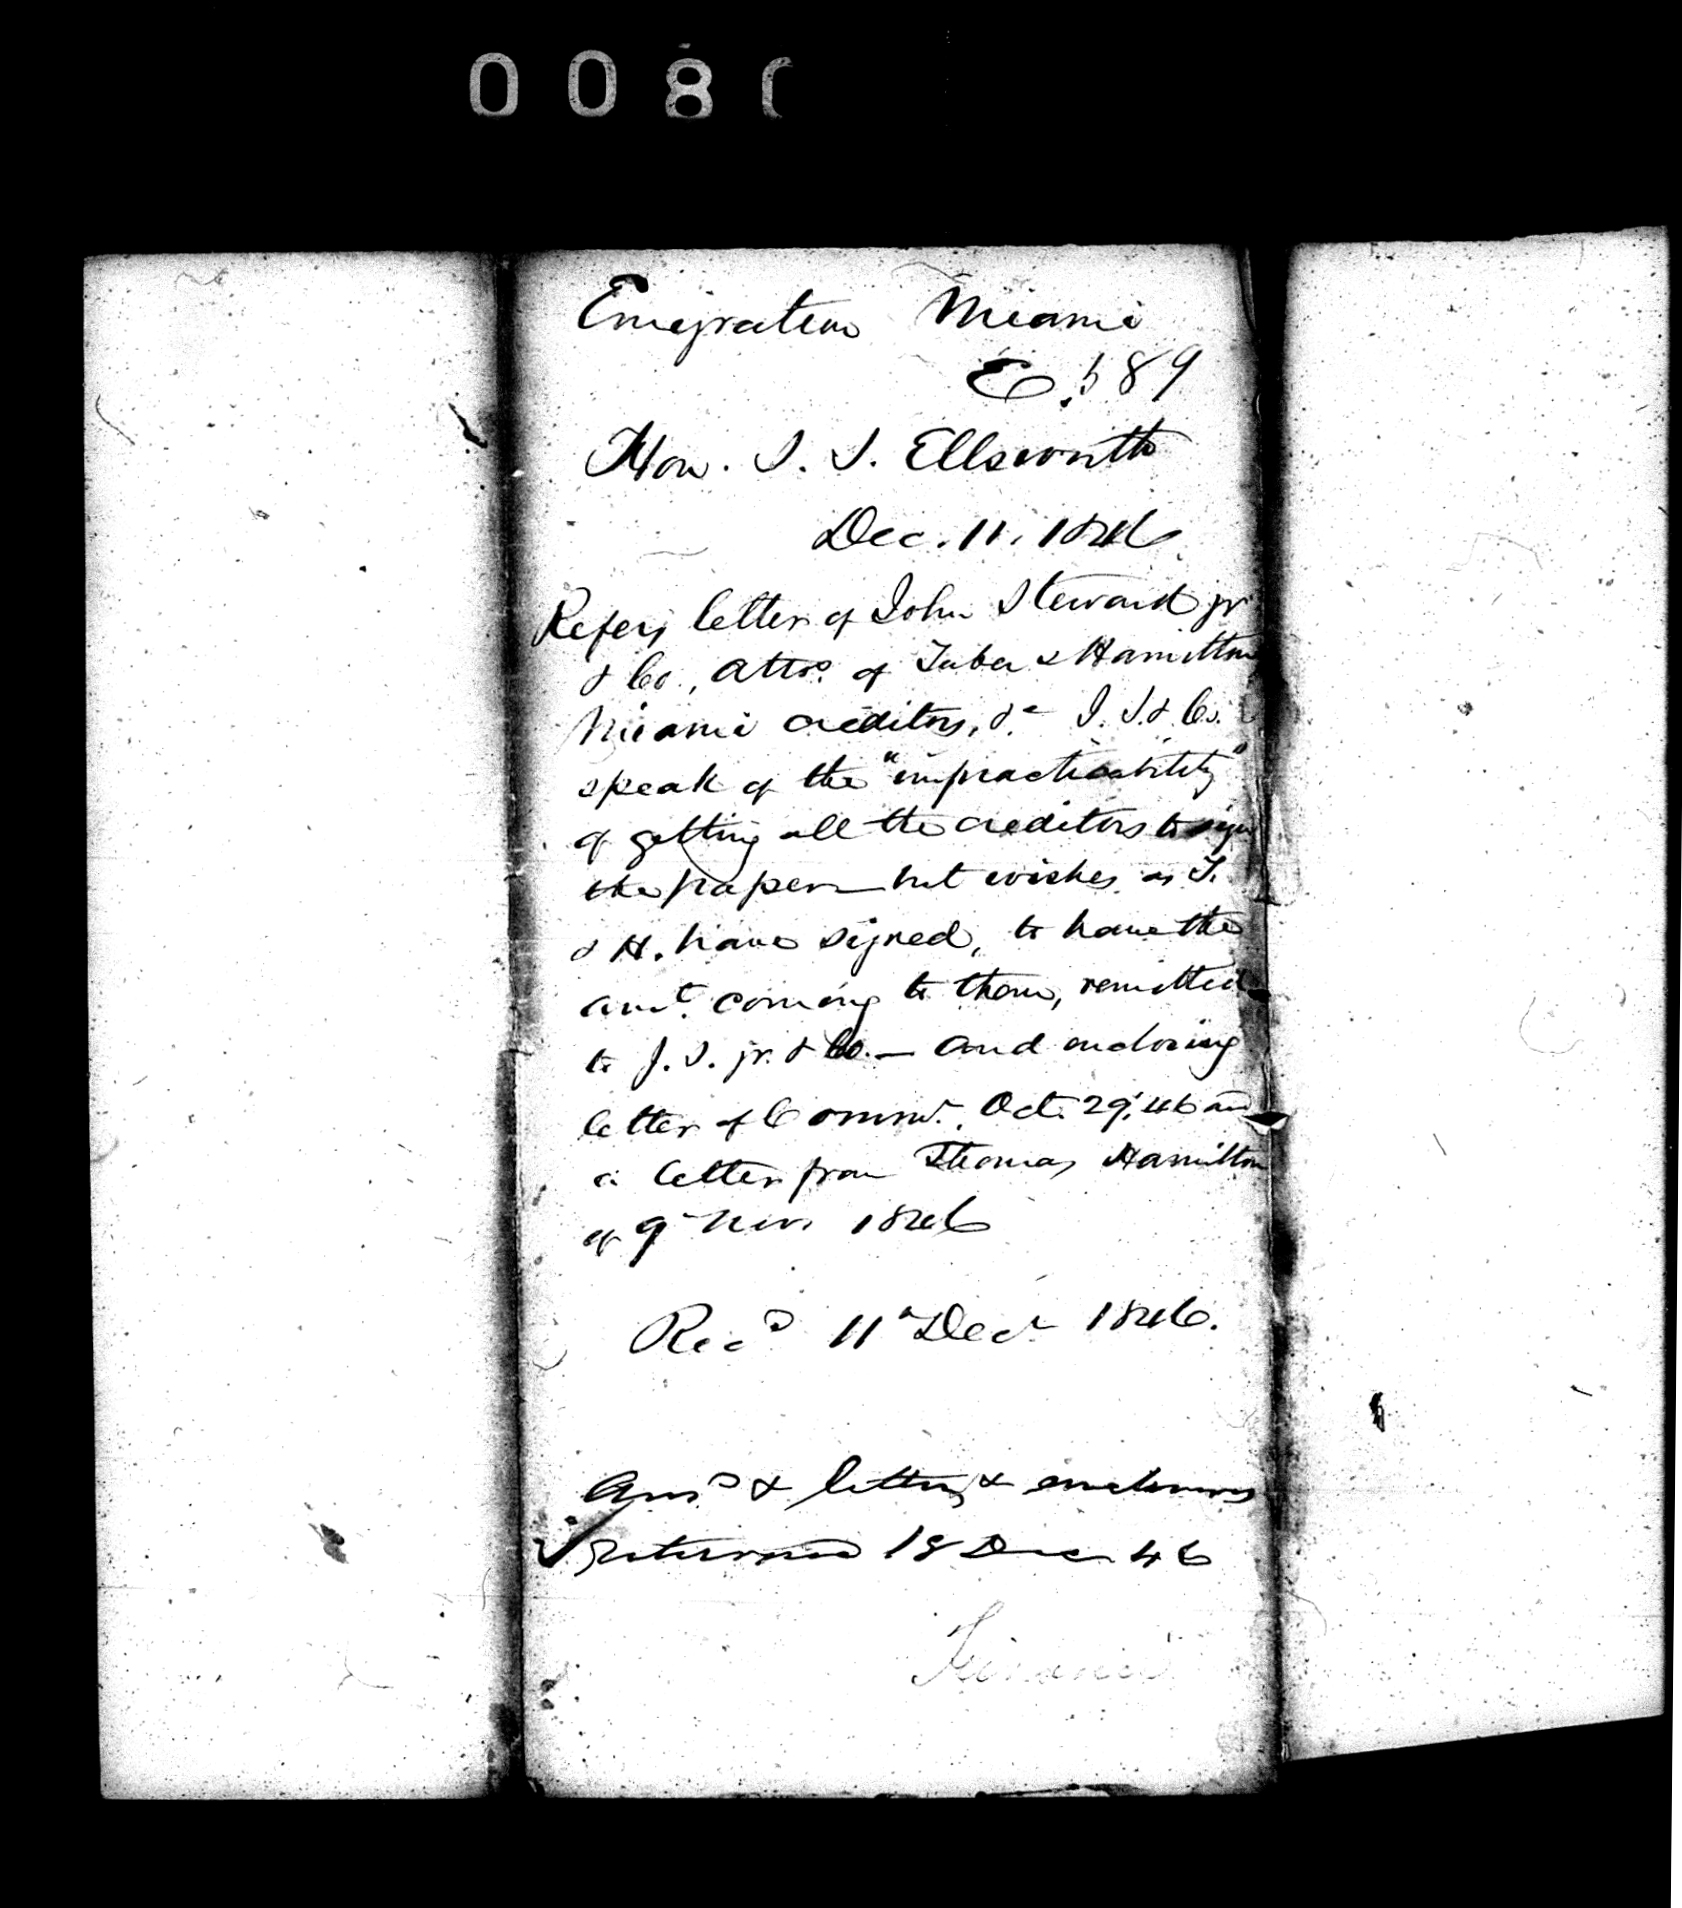 008
Emigration Miami
E. 589
Hon. S. S. Ellsworth
Dec. 11. 1846.
Refers letter of John Steward jr
& Co., attos. of Taber & Hamilton
Miami creditors, &c J. S. & Co.
speak of the "impracticability"
of getting all the creditors to sign
the paper — but wishes as T.
& H. have signed, to have the
amt. coming to them, remitted
to J. S. jr. & Co. — and enclosing
letter of Commr. Oct. 29, 46 and
a letter from Thomas Hamilton
of 9 Nov. 1846
Recd 11 Decr 1846.
Ansd & letters & enclosures
returned 18 Dec 46
Finance